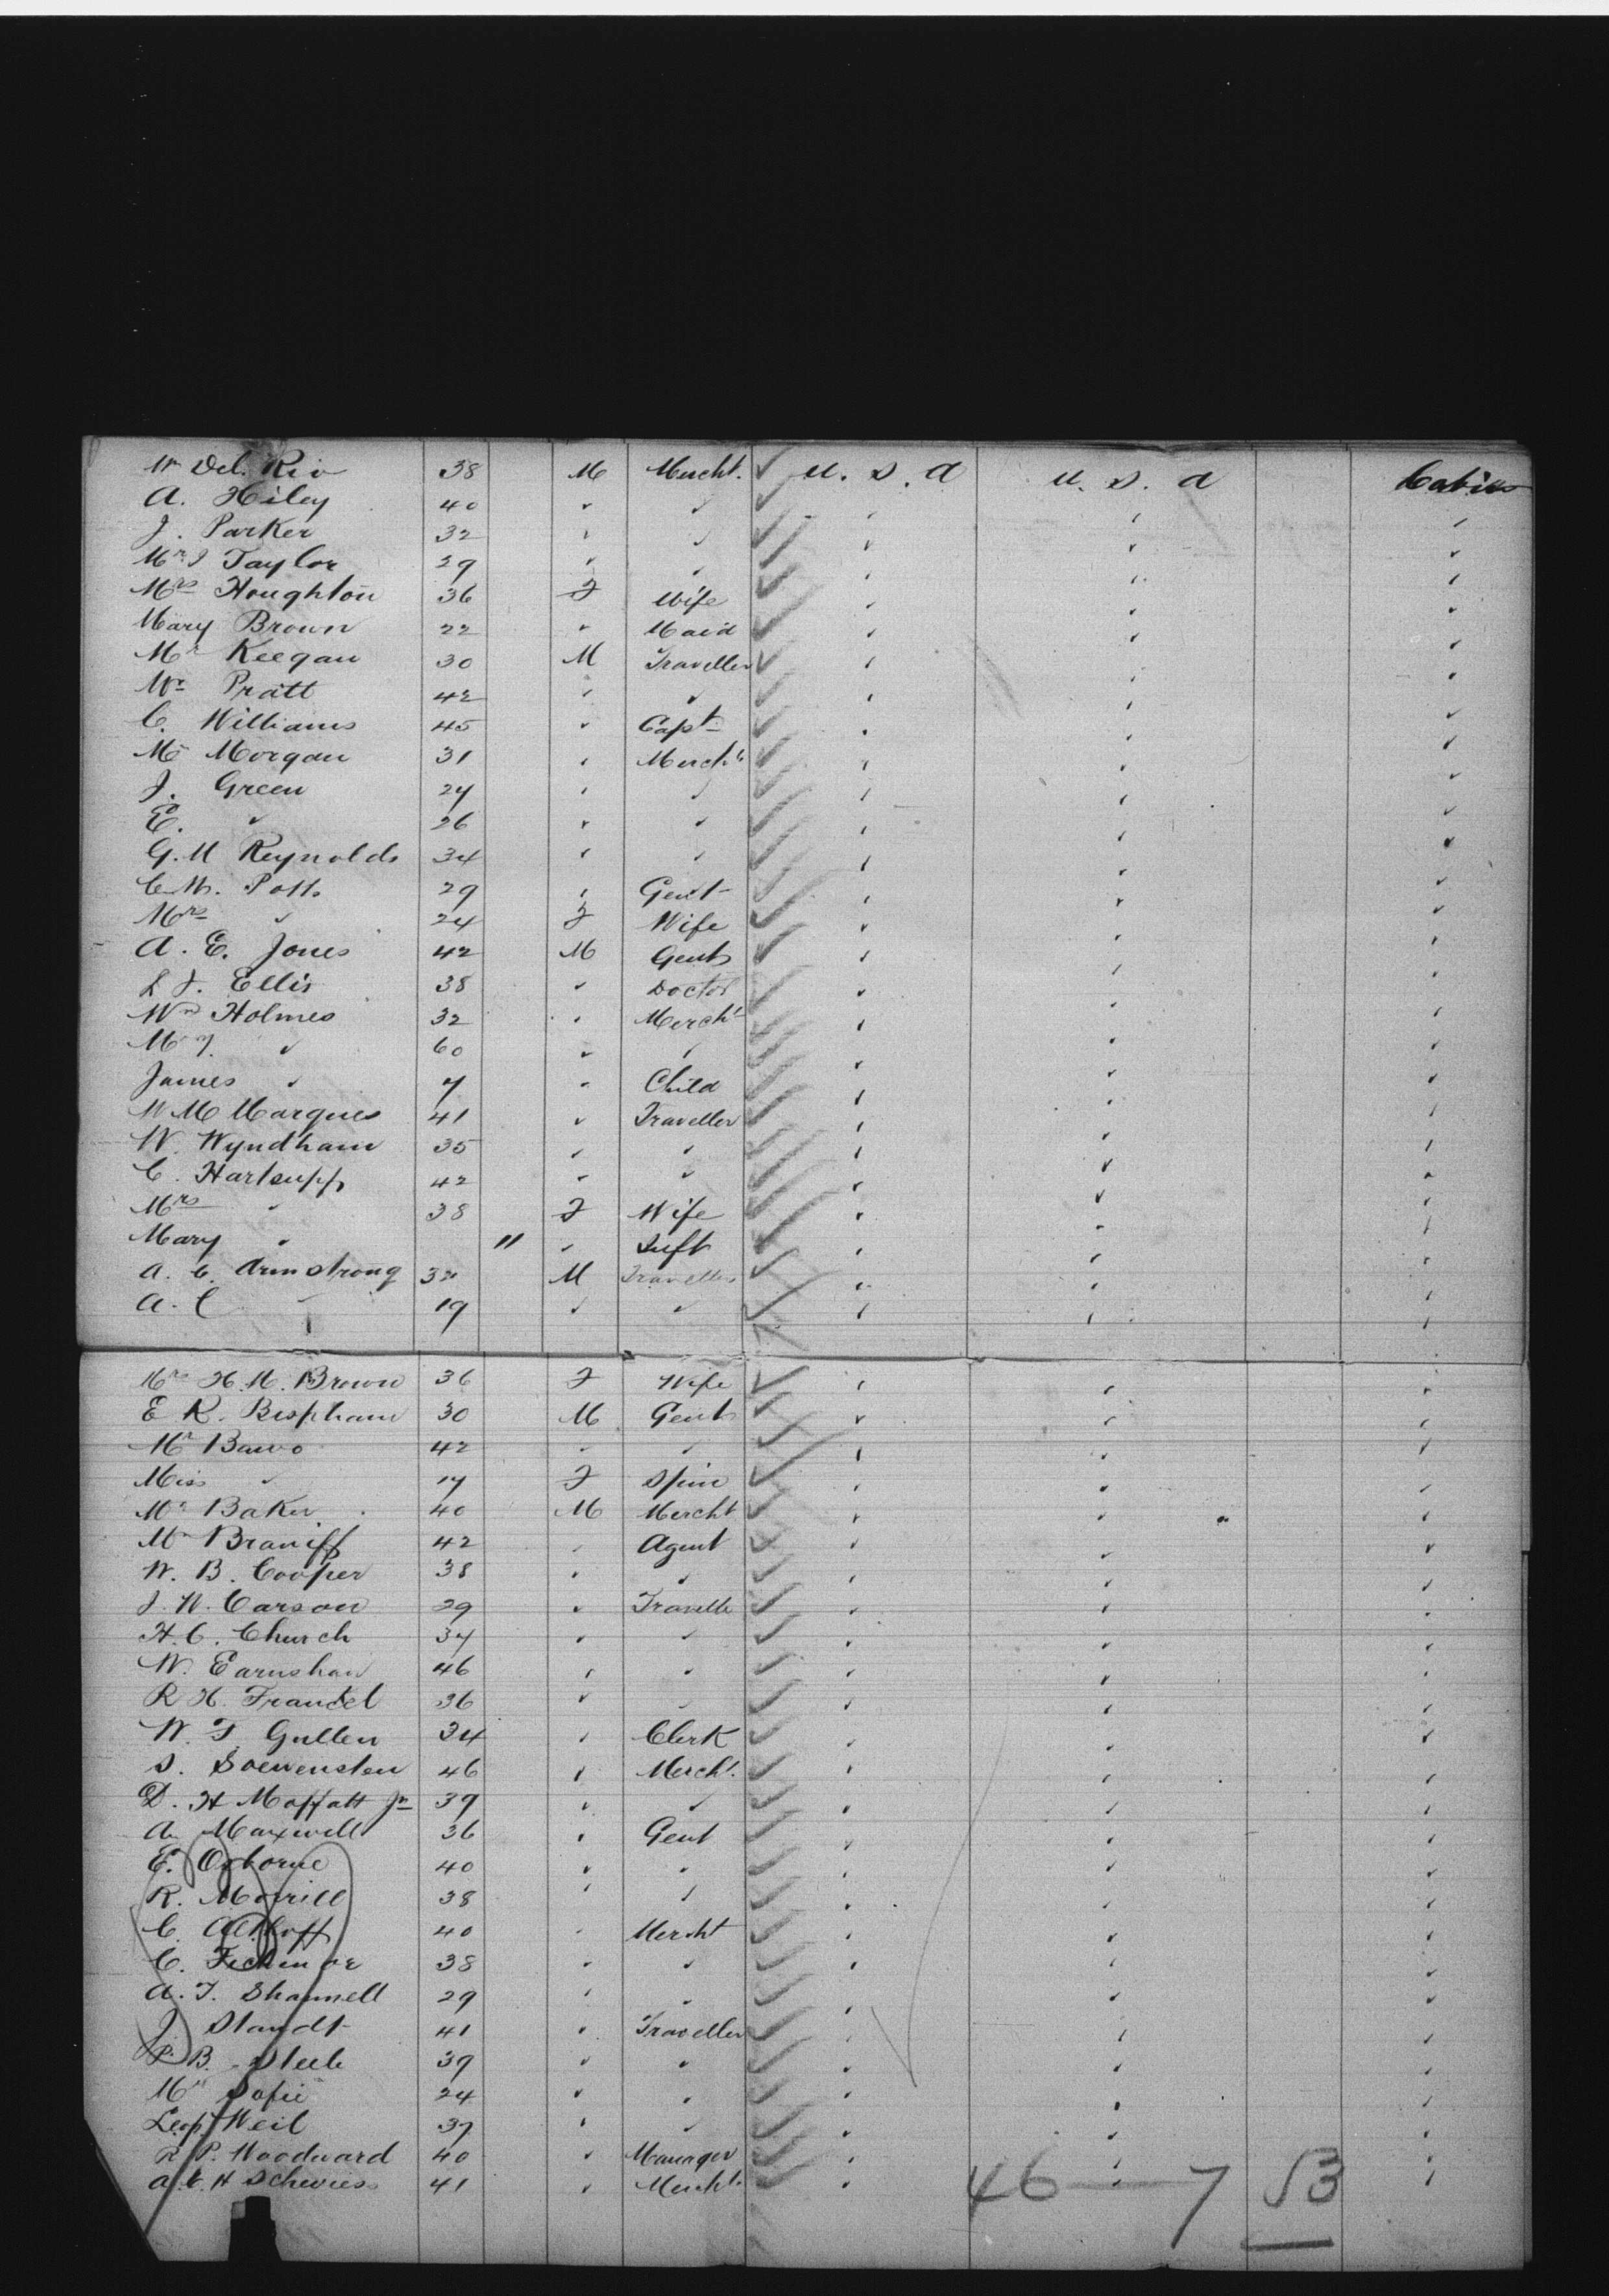 Mr Del. Rio 38 M Mercht. ✓ U. S. A U. S. A Cabin
A. Hiley 40 " " ✓ " " "
J. Parker 32 " " ✓ " " "
Mr J Taylor 29 " " ✓ " " "
Mrs Houghton 36 F Wife ✓ " " "
Mary Brown 22 " Maid ✓ " " "
Mr Keegan 30 M Traveller ✓ " " "
Mr Pratt 42 " " ✓ " " "
C. Williams 45 " Capt ✓ " " "
Mr Morgan 31 " Mercht ✓ " " "
J. Green 24 " " ✓ " " "
E. " 26 " " ✓ " " "
G. M Reynolds 34 " " ✓ " " "
C. M. Potts 29 " Gent ✓ " " "
Mrs " 24 F Wife ✓ " " "
A. E. Jones 42 M Gent ✓ " " "
L J. Ellis 38 " Doctor ✓ " " "
Wm Holmes 32 " Mercht ✓ " " "
" 60 " " ✓ " " "
James " 7 " Child ✓ " " "
W M Marques 41 " Traveller ✓ " " "
W. Wyndham 35 " " ✓ " " "
C. Hartsupp 42 " " ✓ " " "
Mrs " 38 F Wife ✓ " " "
Mary " " " Inft ✓ " " "
A. C. Armstrong 32 M Traveller ✓ " " "
A. C " 19 " " ✓ " " "
Mrs H. M. Brown 36 F Wife ✓ " " "
E R. Bispham 30 M Gent ✓ " " "
Mr Bawo 42 " " ✓ " " "
Miss " 17 F Spin ✓ " " "
Mr Baker 40 M Mercht ✓ " " "
Mr Braniff 42 " Agent ✓ " " "
W. B. Cooper 38 " " ✓ " " "
J. W. Carson 29 " Travelle ✓ " " "
H. C. Church 34 " " ✓ " " "
W. Earnshaw 46 " " ✓ " " "
R H. 36 " " ✓ " " "
W. F. Gullen 34 " Clerk ✓ " " "
S. Loewensten 46 " Mercht. ✓ " " "
D. H Moffatt Jr 39 " " ✓ " " "
A Maxwell 36 " Gent ✓ " " "
E. Osborne 40 " " ✓ " " "
R. Morrill 38 " " ✓ " " "
C. Althoff 40 " Mercht ✓ " " "
C. 38 " " ✓ " " "
A. T. Shannell 29 " " ✓ " " "
J Standt 41 " Traveller ✓ " " "
P. B. Steele 39 " " ✓ " " "
Mr 24 " " ✓ " " "
Leop Weil 37 " " ✓ " " "
R P. Woodward 40 " Manager ✓ " " "
A. C. H 41 " Mercht ✓ " " "
46 — 7 53